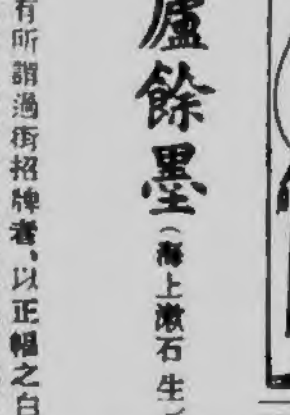 廬餘墨（海上漱石生
有所謂過街招牌者、以正幅之白